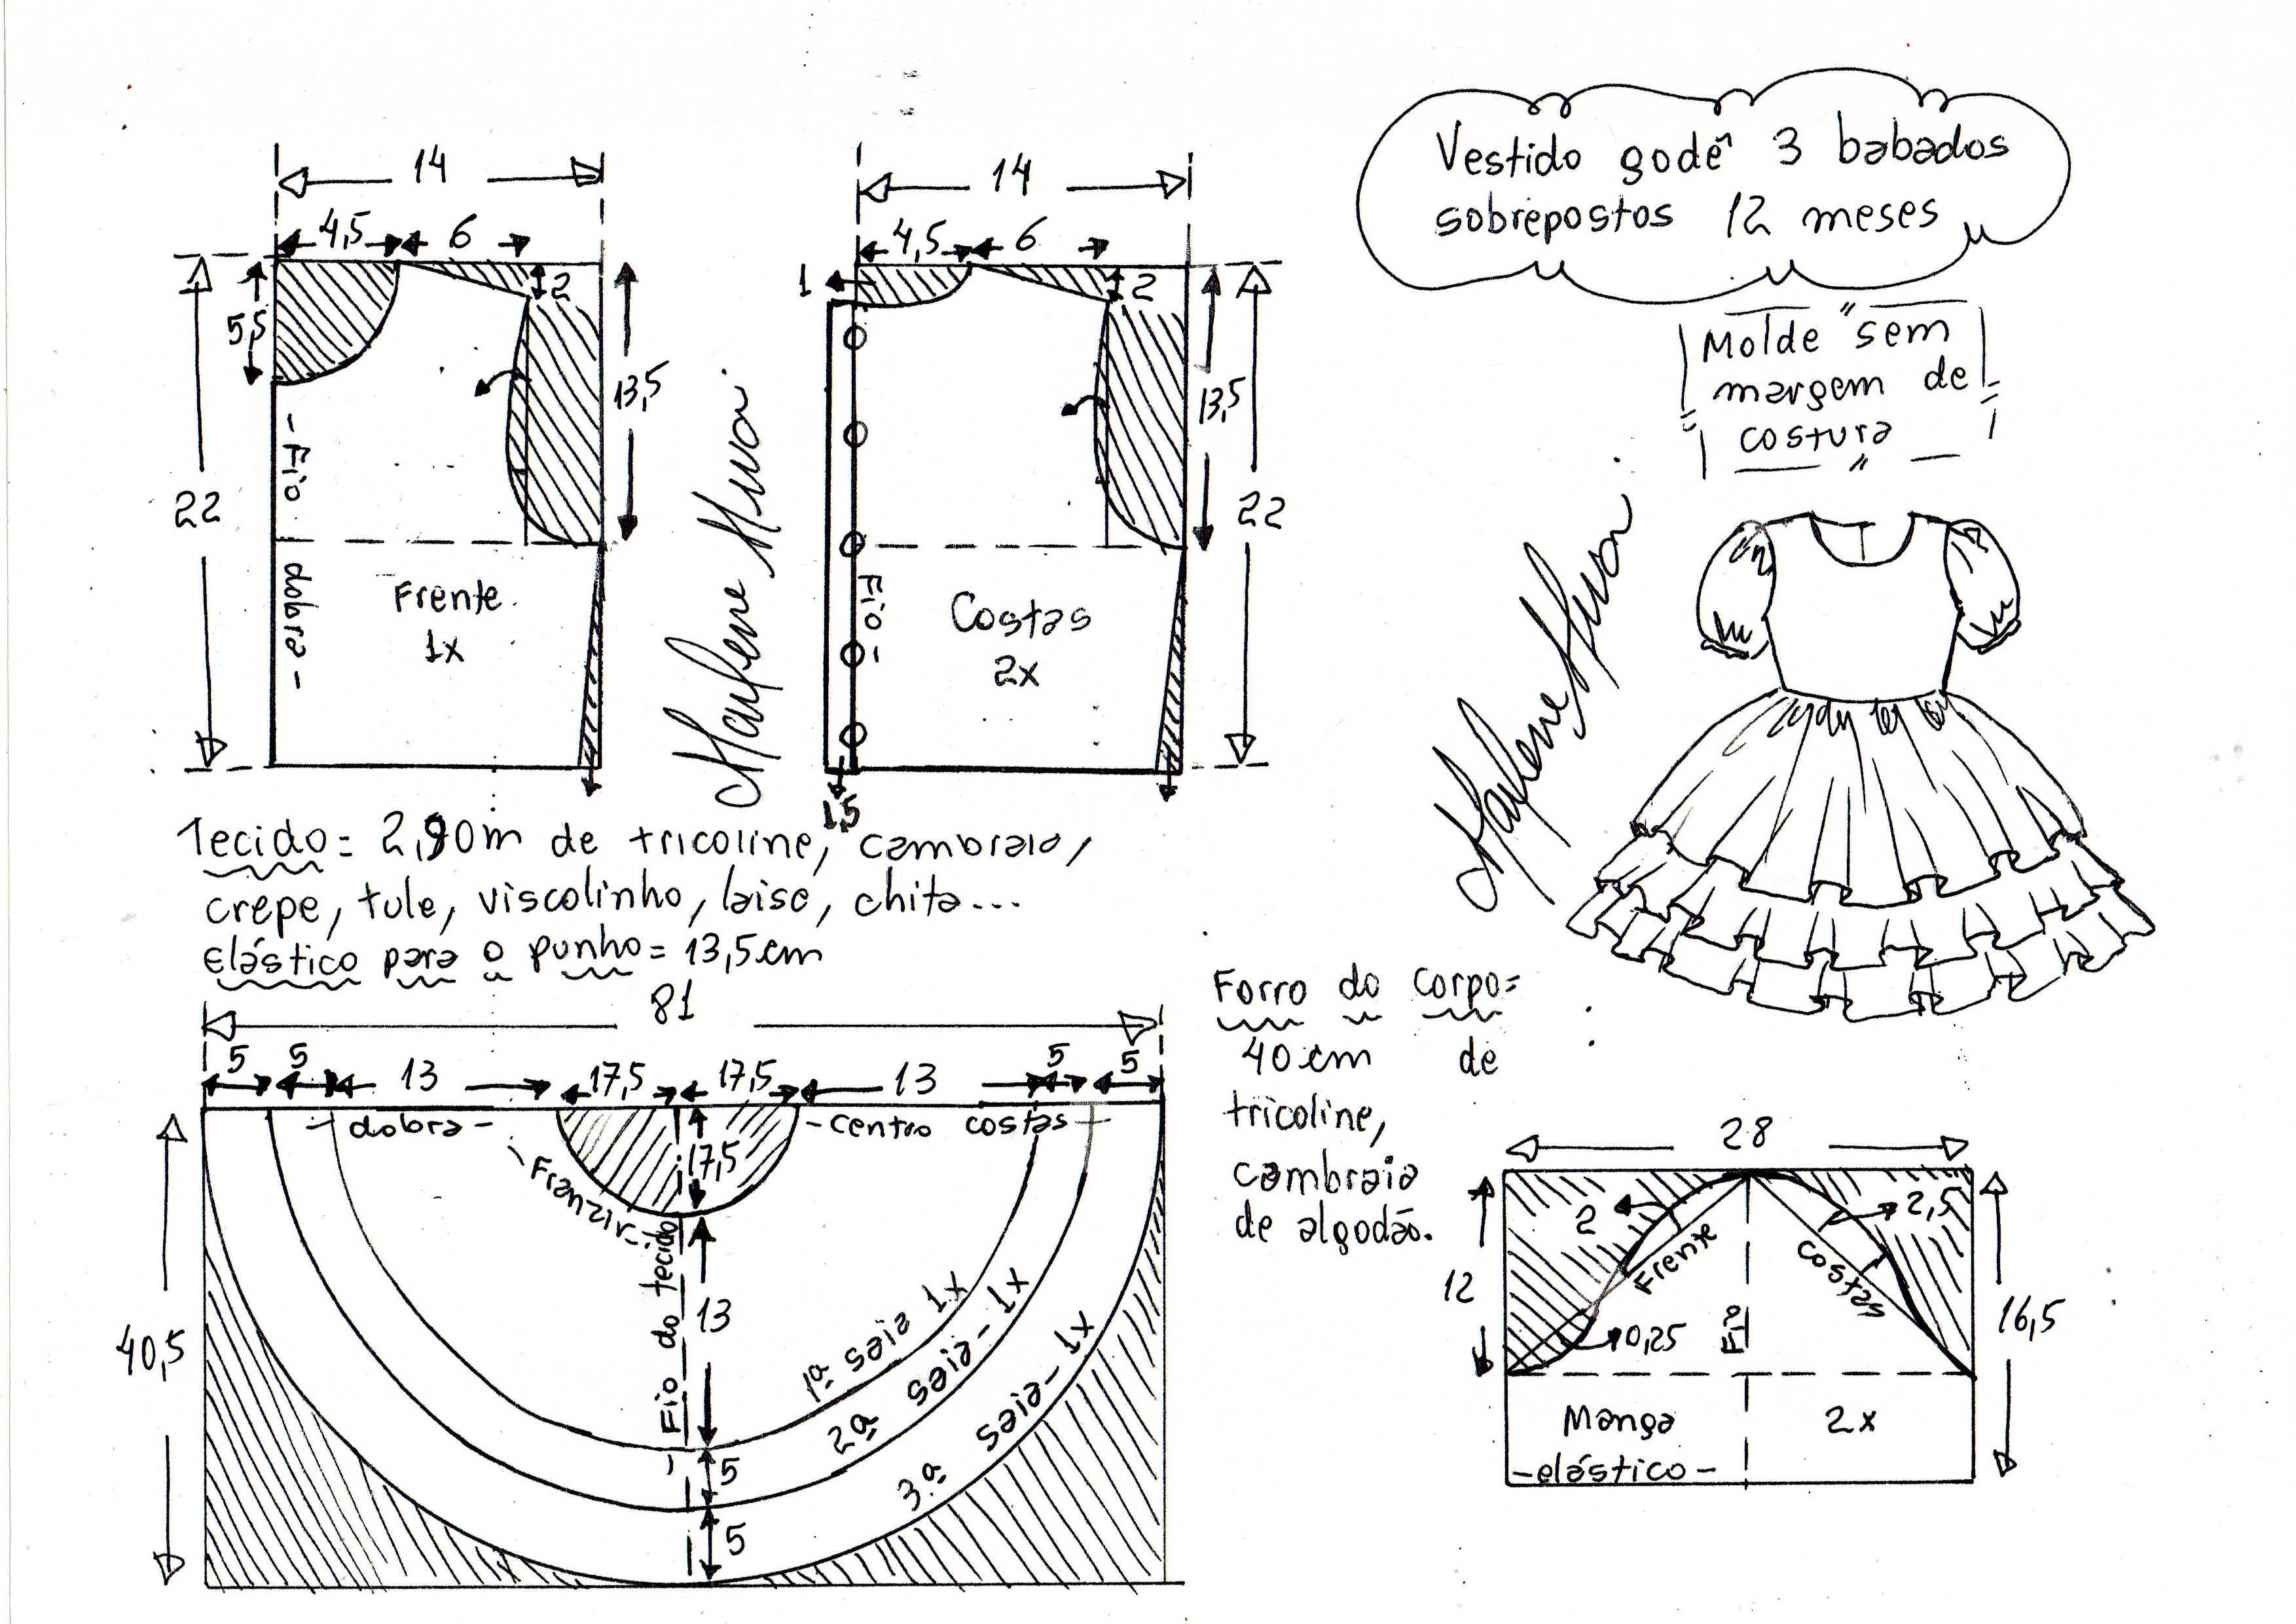 Vestido godê 3 babados
sobrepostos 12 meses
Molde "sem
margem de
costura"
14
4,5
6
2
5,5
22
13,5
- Fio dobra -
Frente
1x
Marlene Mukai
14
4,5
6
1
2
13,5
22
Fio -
Costas
2x
1,5
Marlene Mukai
Tecido = 2,90m de tricoline, cambraia,
crepe, tule, viscolinho, laise, chita...
elástico para o punho = 13,5cm
81
5
5
13
17,5
17,5
13
5
5
- dobra -
- centro costas -
- Franzir -
17,5
- Fio do tecido
13
5
5
40,5
1ª saia 1x
2ª saia - 1x
3ª saia - 1x
Forro do corpo =
40 cm de
tricoline,
cambraia
de algodão.
28
2
2,5
Frente
costas
Fio
0,25
12
16,5
Manga 2x
- elástico -